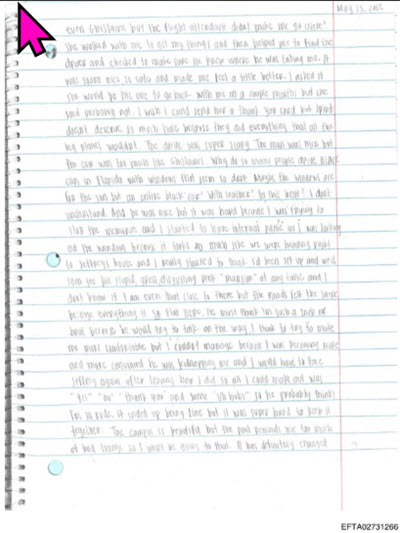 May 15, 2002
even Ghislaine but the flight attendant didnt make me go alone!
She worked with me to get my things and then helped me to find the
driver and checked to make sure he knew where he was taking me. It
was soooo nice is and made me feel a little better. I asked if
she would be the one to go back with me in a couple months but she
said probably not. I wish I could send her a thank you card but
doesnt deserve so much because they did everything that on the
big planes wouldnt! The drive was super scary. The man was nice but
the car was too much like Ghislaines. Why do so many people drive BLACK
cars in Florida with windows that seem so dark. Maybe the windows are
for the sun but an entire black car with leather in this heat? I dont
understand. And he was nice but it was hard because I was trying to
stop the and I started to have internal panic as I was looking
out the window because it looks so much like we were heading right
to Jeffreys house and I really started to think Id been set up and
soon see his stupid, gross, disgusting pink "mansion" at any time and I
dont know if I am even that close to there but the roads felt the same
because everything is so flat here. He must think Im such a
because he would try to talk on the way I think to try to make
me more comfortable but I couldnt manage because I was becoming more
and more convinced he was kidnapping me and I would have to face
Jeffrey again after leaving how I did so all I could make out was
"Yes" "no" "thank you" and some "uh huhs" so he probably thinks
Im so rude. It ended up being fine but it was super hard to keep it
together. The campus is beautiful but the pool reminds me too much
of bad things so I wont be going to that. It has definitely changed
EFTA02731266